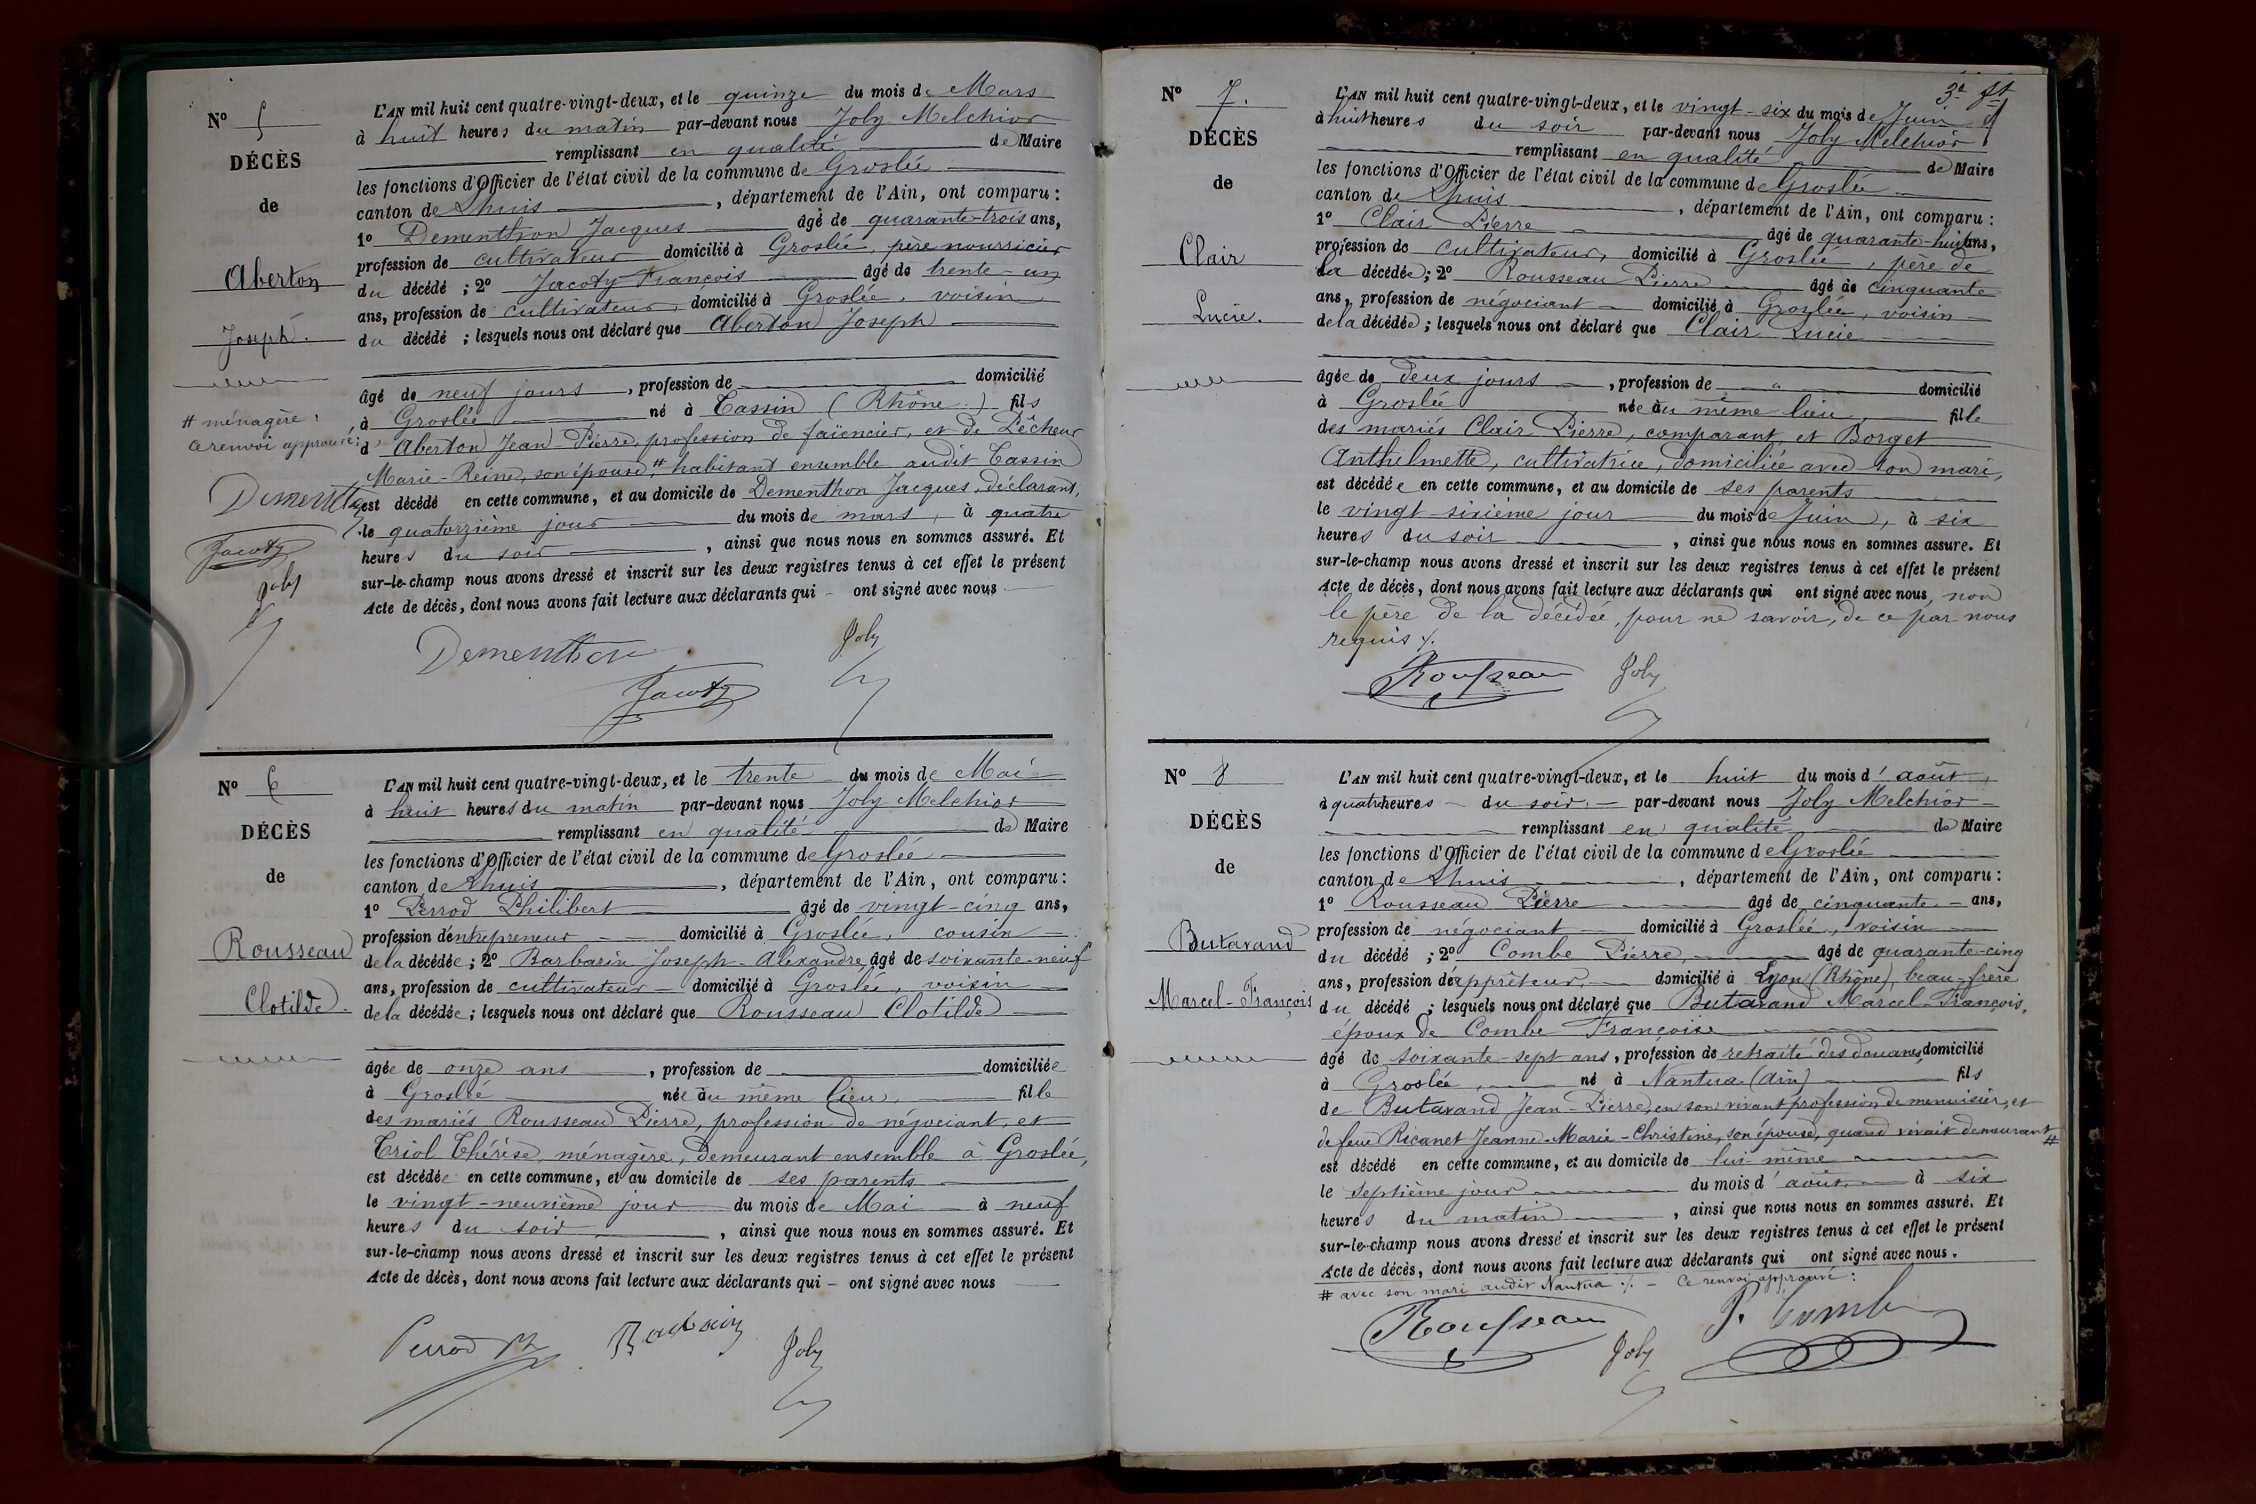 N° 5
DÉCÈS
de
Aberton
Joseph.
# ménagère :
ce renvoi approuvé :
Dementhon
Jacoty
Joly
L'AN mil huit cent quatre-vingt-deux, et le quinze du mois de Mars
à huit heures du matin par-devant nous Joly Melchior
remplissant en qualité de Maire
les fonctions d'Officier de l'état civil de la commune de Groslée
canton de Lhuis, département de l'Ain, ont comparu :
1° Dementhon Jacques âgé de quarante-trois ans,
profession de cultivateur domicilié à Groslée, père nourricier
du décédé ; 2° Jacoty François âgé de trente-un
ans, profession de cultivateur, domicilié à Groslée, voisin
du décédé ; lesquels nous ont déclaré que Aberton Joseph
âgé de neuf jours, profession de domicilié
à Groslée né à Tassin (Rhône) fils
d'Aberton Jean-Pierre, profession de faïencier, et de Pêcheur
Marie-Reine, son épouse, # habitant ensemble audit Tassin
est décédé en cette commune, et au domicile de Dementhon Jacques, déclarant,
le quatorzième jour du mois de mars, à quatre
heures du soir, ainsi que nous nous en sommes assuré. Et
sur-le-champ nous avons dressé et inscrit sur les deux registres tenus à cet effet le présent
Acte de décès, dont nous avons fait lecture aux déclarants qui - ont signé avec nous
Dementhon
Joly
Jacoty
N° 6
DÉCÈS
de
Rousseau
Clotilde.
L'AN mil huit cent quatre-vingt-deux, et le trente du mois de Mai
à huit heures du matin par-devant nous Joly Melchior
remplissant en qualité de Maire
les fonctions d'Officier de l'état civil de la commune de Groslée
canton de Lhuis, département de l'Ain, ont comparu :
1° Perrod Philibert âgé de vingt-cinq ans,
profession d'entrepreneur domicilié à Groslée, cousin
de la décédée ; 2° Barbarin Joseph-Alexandre, âgé de soixante-neuf
ans, profession de cultivateur domicilié à Groslée, voisin
de la décédée ; lesquels nous ont déclaré que Rousseau Clotilde
âgée de onze ans, profession de domiciliée
à Groslée née au même lieu, fille
des mariés Rousseau Pierre, profession de négociant, et
Triol Thérèse, ménagère, demeurant ensemble à Groslée,
est décédée en cette commune, et au domicile de ses parents
le vingt-neuvième jour du mois de Mai à neuf
heures du soir, ainsi que nous nous en sommes assuré. Et
sur-le-champ nous avons dressé et inscrit sur les deux registres tenus à cet effet le présent
Acte de décès, dont nous avons fait lecture aux déclarants qui - ont signé avec nous
Perrod Ph
Barbarin
Joly
3e ft
N° 7.
DÉCÈS
de
Clair
Lucie.
L'AN mil huit cent quatre-vingt-deux, et le vingt-six du mois de Juin
à huit heures du soir par-devant nous Joly Melchior
remplissant en qualité de Maire
les fonctions d'Officier de l'état civil de la commune de Groslée
canton de Lhuis, département de l'Ain, ont comparu :
1° Clair Pierre âgé de quarante-huit ans,
profession de cultivateur, domicilié à Groslée, père de
la décédée ; 2° Rousseau Pierre âgé de cinquante
ans, profession de négociant domicilié à Groslée, voisin
de la décédée ; lesquels nous ont déclaré que Clair Lucie
âgée de deux jours, profession de " domicilié
à Groslée née au même lieu, fille
des mariés Clair Pierre, comparant, et Borget
Anthelmette, cultivatrice, domiciliée avec son mari,
est décédée en cette commune, et au domicile de ses parents
le vingt-sixième jour du mois de Juin, à six
heures du soir, ainsi que nous nous en sommes assuré. Et
sur-le-champ nous avons dressé et inscrit sur les deux registres tenus à cet effet le présent
Acte de décès, dont nous avons fait lecture aux déclarants qui ont signé avec nous, non
le père de la décédée, pour ne savoir, de ce par nous
requis ./.
Rousseau
Joly
N° 8
DÉCÈS
de
Butavand
Marcel-François
L'AN mil huit cent quatre-vingt-deux, et le huit du mois d'août,
à quatre heures du soir. par-devant nous Joly Melchior
remplissant en qualité de Maire
les fonctions d'Officier de l'état civil de la commune de Groslée
canton de Lhuis, département de l'Ain, ont comparu :
1° Rousseau Pierre âgé de cinquante ans,
profession de négociant domicilié à Groslée, voisin
du décédé ; 2° Combe Pierre, âgé de quarante-cinq
ans, profession d'apprêteur, domicilié à Lyon (Rhône), beau-frère
du décédé ; lesquels nous ont déclaré que Butavand Marcel-François,
époux de Combe Françoise
âgé de soixante-sept ans, profession de retraité des douanes, domicilié
à Groslée, né à Nantua (Ain) fils
de Butavand Jean-Pierre, en son vivant profession de menuisier, et
de feue Ricanet Jeanne-Marie-Christine, son épouse, quand vivait demeurant #
est décédé en cette commune, et au domicile de lui-même
le septième jour du mois d'août à six
heures du matin, ainsi que nous nous en sommes assuré. Et
sur-le-champ nous avons dressé et inscrit sur les deux registres tenus à cet effet le présent
Acte de décès, dont nous avons fait lecture aux déclarants qui ont signé avec nous.
# avec son mari audit Nantua ./. - Ce renvoi approuvé :
Rousseau
Joly
P. Combe